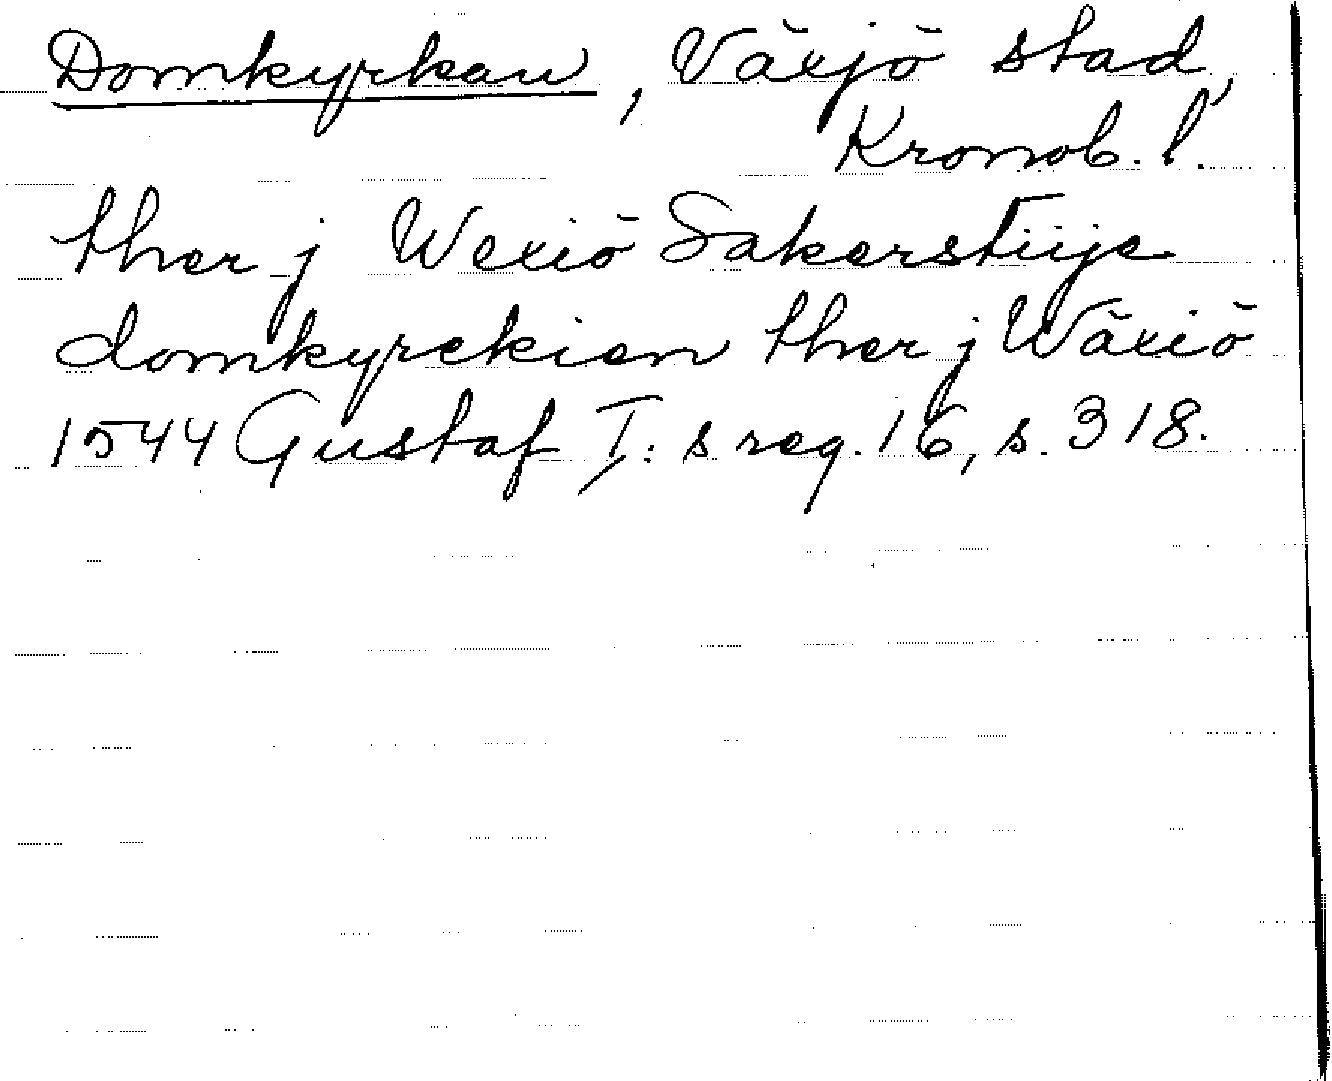 Domkyrkan, Växjö stad,
Kronob. l.
ther j Wexiö Sakerstiije
domkyrckien ther j Wäxiö
1544 Gustaf I: s reg. 16, s. 318.